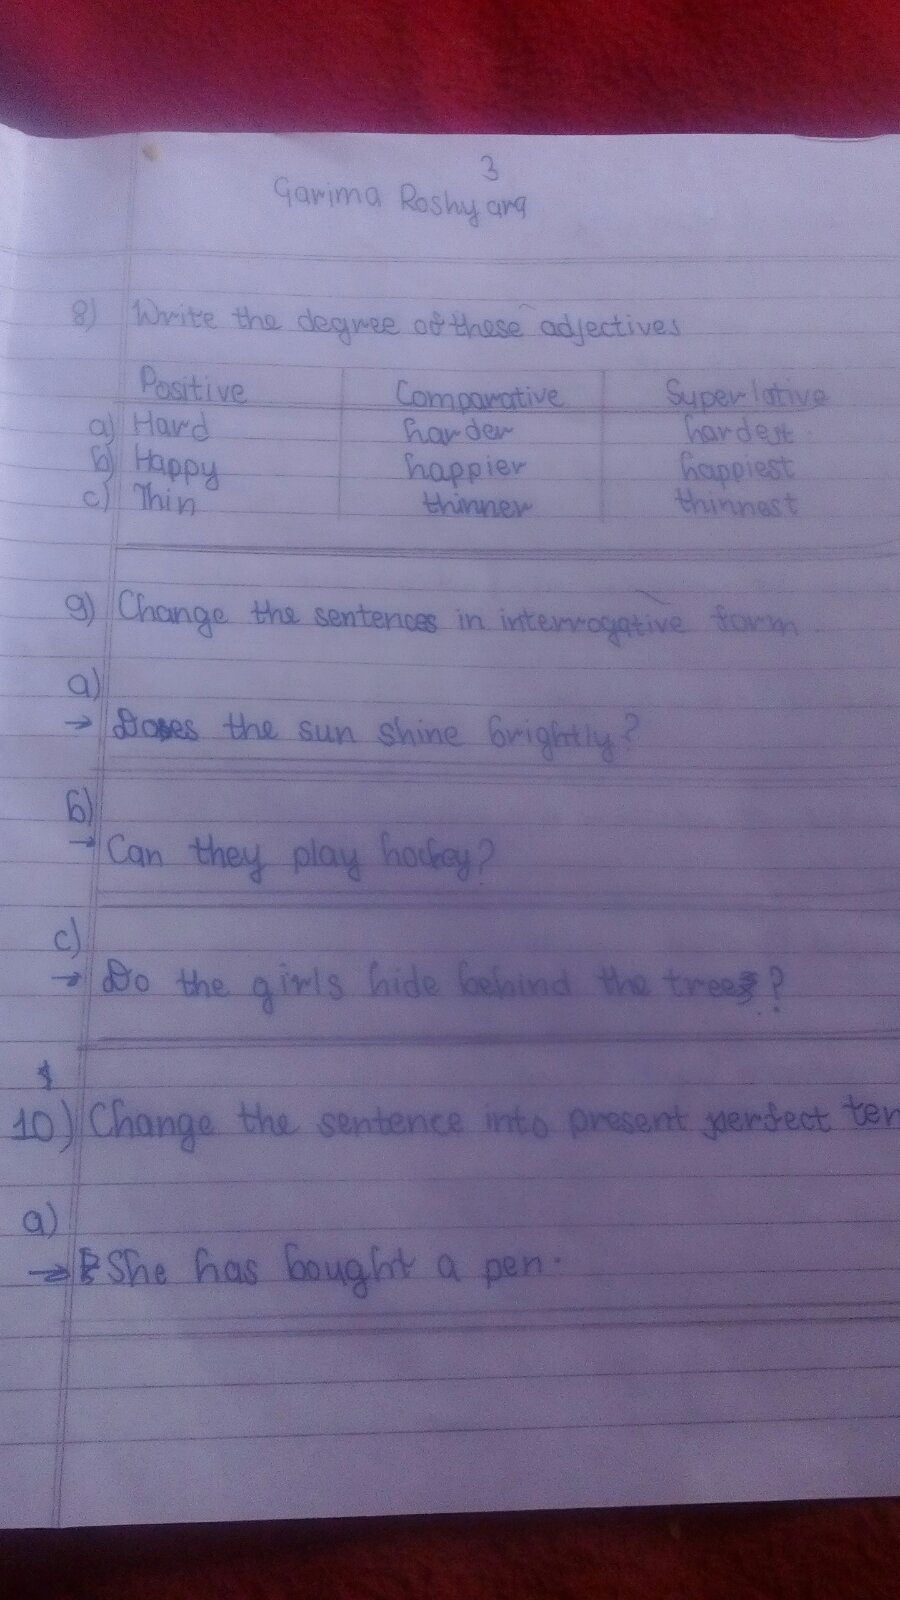 3
Garima Roshyara
8) Write the degree of these adjectives
Positive Comparative Superlative
a) Hard harder hardest
b) Happy happier happiest
c) Thin thinner thinnest
9) Change the sentences in interrogative form
a)
→ Does the sun shine brightly?
b)
→ Can they play hockey?
c)
→ Do the girls hide behind the trees?
10) Change the sentence into present perfect ten
a)
→ She has bought a pen.